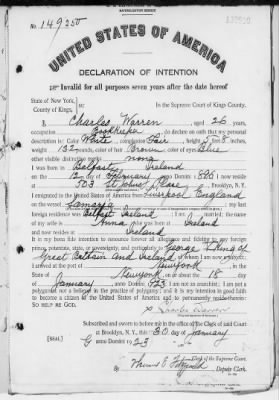 No. 149250
UNITED STATES OF AMERICA
DECLARATION OF INTENTION
Invalid for all purposes seven years after the date hereof
State of New York,
County of Kings,
In the Supreme Court of Kings County.
I Charles Warren aged 26 years,
occupation Bookkeeper do declare on oath that my personal
description is: Color White, complexion Fair, height 5 feet 8 inches,
weight 132 pounds, color of hair Brown color of eyes Blue
other visible distinctive marks none
I was born in Belfast, Ireland
on the 12 day of February, anno Domini 1 ; I now reside
at 503 St Johns Place, Brooklyn, N. Y.
I emigrated to the United States of America from Liverpool England
on the vessel Samaria ; my last
foreign residence was Belfast Ireland ; I am married; the name
of my wife is Anna, she was born at Ireland
and now resides at
Ireland
It is my bona fide intention to renounce forever all allegiance and fidelity to any foreign
prince, potentate, state, or sovereignty, and particularly to George V King of
Great Britain and Ireland of whom I am now a subject;
I arrived at the port of Newyork in the
State of Newyork on or about the 18 day
of January anno Domini 1923 I am not an anarchist; I am not a
polygamist nor a believer in the practice of polygamy; and it is my intention in good faith
to become a citizen of the United States of America and to permanently reside therein:
SO HELP ME GOD.
Charles Warren
Subscribed and sworn to before me in the office of the Clerk of said Court
at Brooklyn, N. Y., this 30 day of January
[SEAL] anno Domini 1923
Clerk of the Supreme Court.
Deputy Clerk.